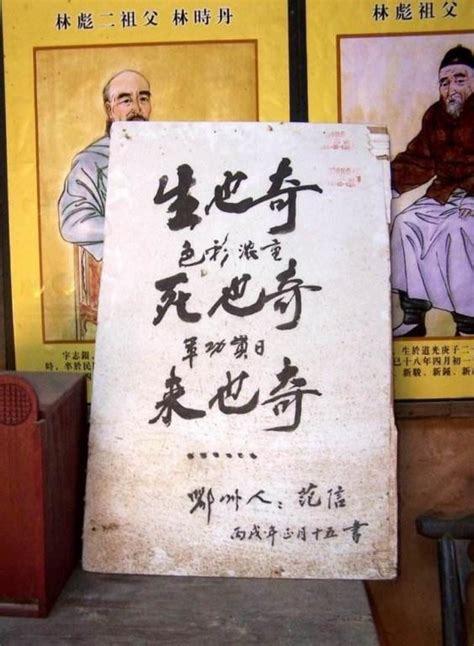 林彪二祖父 林時丹
林彪祖父 林
生也奇
色彩浓重
死也奇
军功贯日
来也奇
......
鄂州人：范信
丙戌年正月十五 書
字志銀，
時，卒於民
生於道光庚子二
十八年四月初一